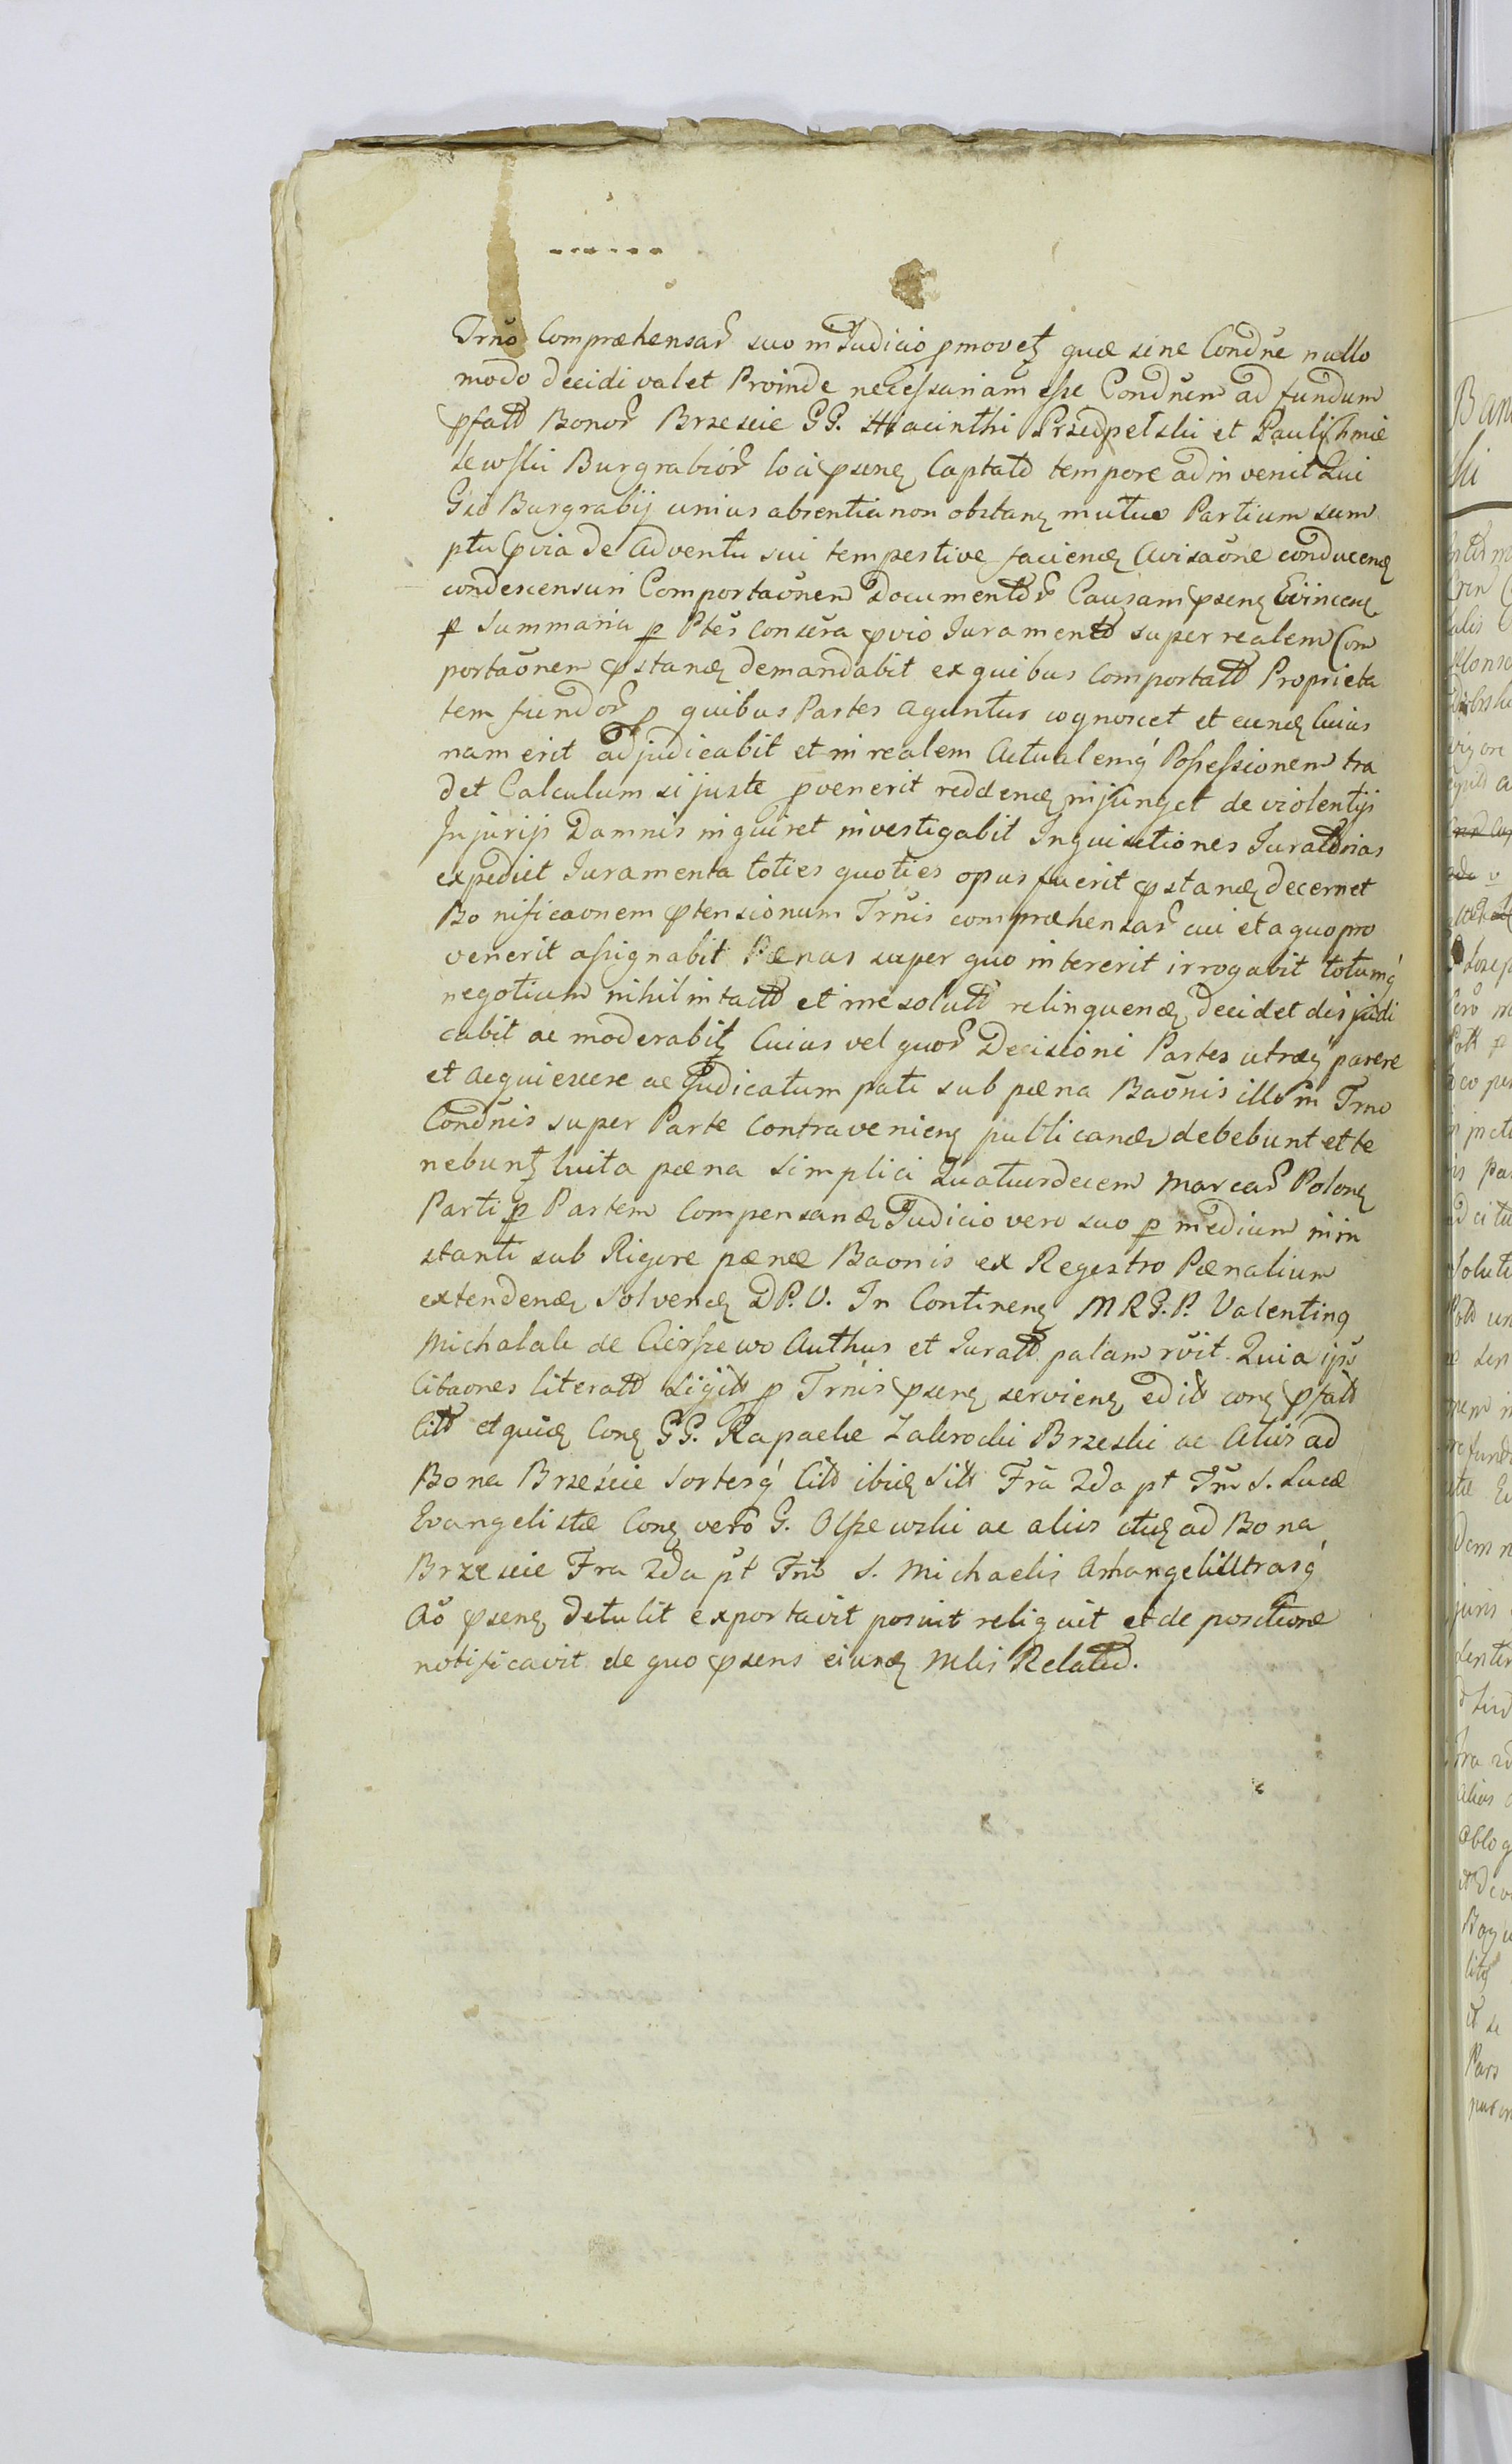 Trno Compræhensar suo in Judicio pmovetz quæ sine Condne nullo
modo decidi valet Proinde necessariam esse Condnem ad fundum
pfatt Bonor Brzescie GG. Hyacinthi Przedpelski et Pauli Chmie
lewski Burgrabior loci psenz Captato tempore adinvenit Qui
Gsi Burgrabij unius absentia non obstanz mutuo Partium sum
ptu pvia de adventu sui tempestive faciend Avisaone conducend
condescensuri Comportaonem Documentor Causam psenz Evincenz
p Summaria p Ptes consera pvio Juramento super realem Com
portaonem pstand demandabit ex quibus Comportatt Proprieta
tem fundor p quibus Partes aguntur cognoscet et eund Cuius
nam erit adjudicabit et in realem Actualemq Possessionem tra
det Calculum si juste pvenerit reddend injunget de violentijs
Injurijs Damnis inquiret investigabit Inquisitiones Juratorias
expediet Juramenta toties quoties opus fuerit pstand decernet
Bonificaonem ptensionum Trnis compræhensar cui et a quo pro
venerit assignabit Pænas super quo intererit irrogabit totumq
negotium nihil intactt et irresolutt relinquend decidet dijudi
cabit ac moderabitz Cuius vel quor Decisioni Partes utræq parere
et acquiescere ac Judicatum pati sub pæna Baonis illo in Trno
Condnis super Parte Contravenienz publicand debebunt et te
nebuntz luita pæna simplici Quatuordecem Marcar Polonz
Parti p Partem Compensand Judicio vero suo p medium in in
stanti sub Rigore pænæ Baonis ex Registro Pænalium
extendend solvend DP.V. In Continenz MRG.P. Valentinq
Michalak de Cierszewo Authus et Juratt palam rvit Quia ips
Citaones literatt Sigitt p Trnis psenz servienz edit conz pfatt
Citt et quid Conz GG. Raphaele Zakrocki Brzeski ac Alios ad
Bona Brzescie Sortesq Citt ibid Sitt Fra 2da pt Fm S. Lucæ
Evangelistæ Conz vero G. Olszewski ac alios itid ad Bona
Brzescie Fra 2da pt Fm S. Michaelis Arhangeli Utrasq
Ao psenz detulit exportavit posuit reliquit et de positione
notificavit de quo psens eiusd Mlis Relatio.